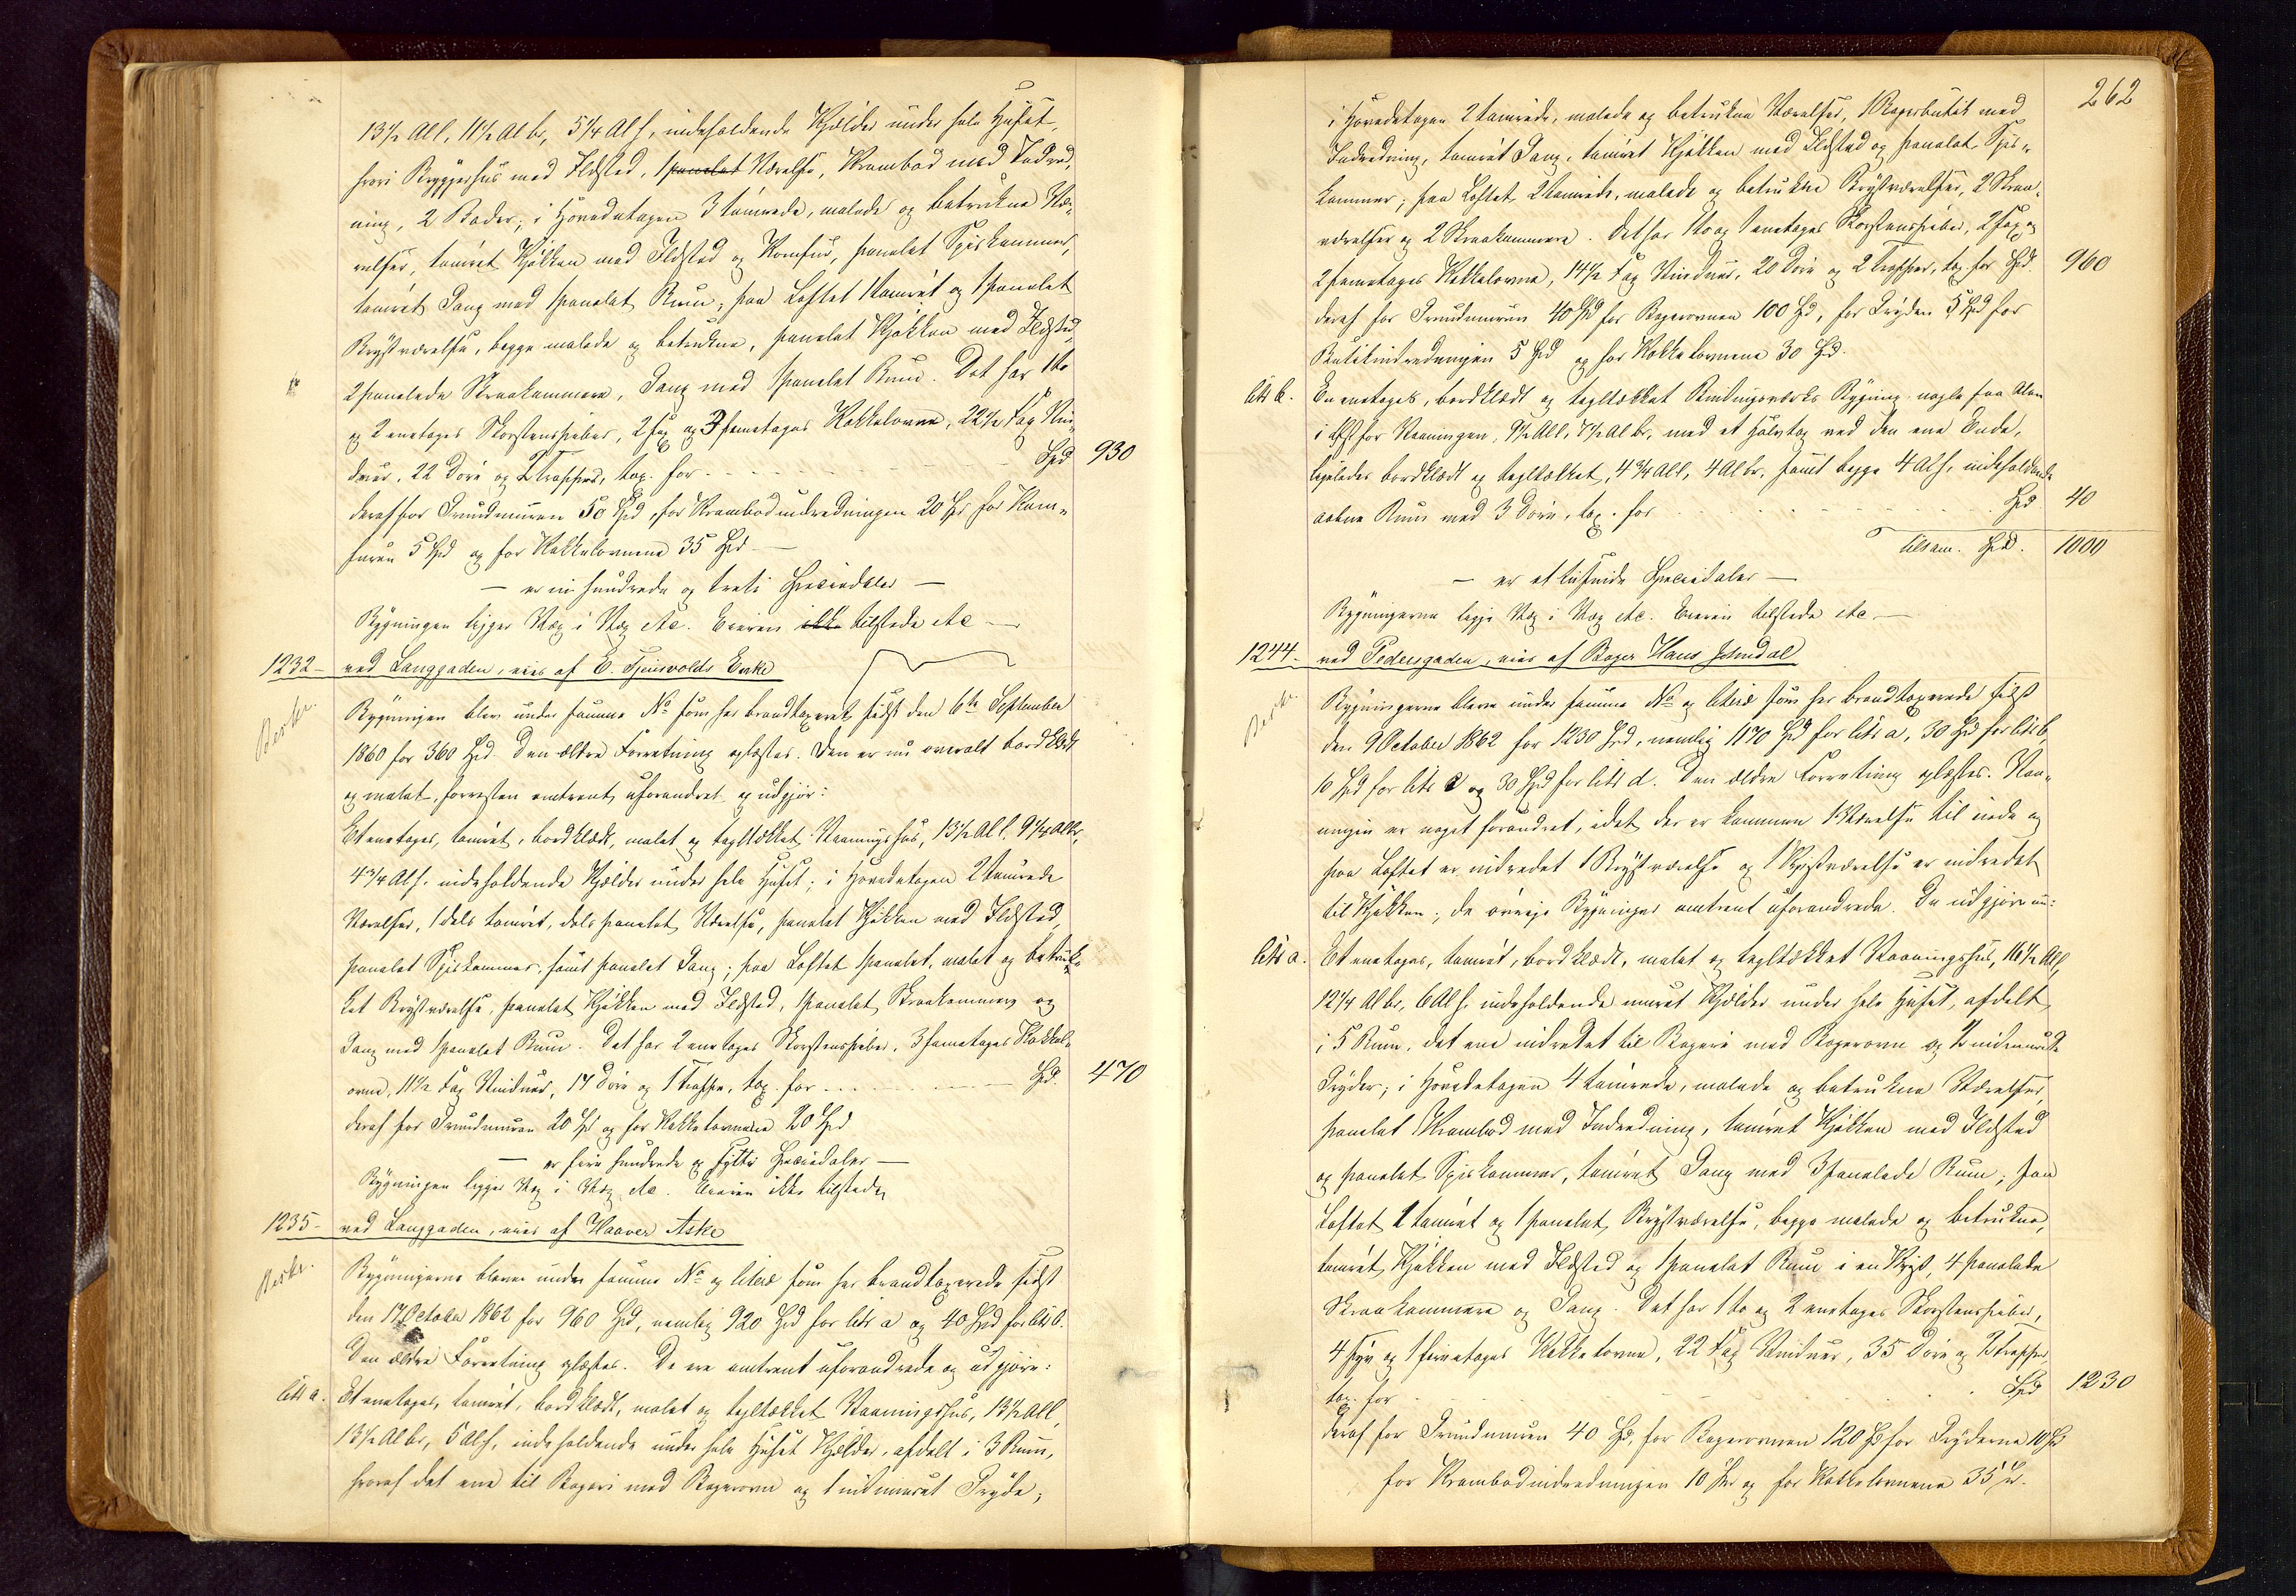 13½ Al l., 11½ Al br., 5¼ Al h., indeholdende Kjelder under hele Huset,
hvori Bryggerhus med Ildsted, 1 panelet Værelse, Krambod med Indred-
ning, 2 Boder; i Hovedetagen 3 tømrede, malede og betrukne Væ-
relser, tømret Kjøkken med Ildsted og Komfur, panelet Spiskammer,
tømret Gang med 1 panelet Rum; paa Loftet 1 tømret og 1 panelet
Krystværelse, begge malede og betrukne, panelet Kjøkken med Ildsted,
2 panelede Skraakammere, Gang med 1 panelet Rum. Det har 1 to
og 2 enetages Skorstenspiber, 2 og 3 femetages Kakkelovne, 22½ Fag Vin-
duer, 22 Døre og 2 Trapper, tax. for Spd 930
deraf for Grundmuren 50 Spd, for Krambodindredningen 20 Spd, for Kom-
furen 5 Spd og for Kakkelovnene 35 Spd –
– er ni hundrede og treti Speciedaler –
Bygningen ligger Væg i Væg etc. Eieren ikke tilstede etc –
1232 – ved Langgaden, eies af E. Tjensvolds Enke
Beskr.
Bygningen blev under samme No som her brandtaxeret sidst den 6te September
1860 for 360 Spd. Den ældre Forretning oplæstes. Den er nu overalt bordklædt
og malet, forresten omtrent uforandret og udgjør:
Et enetages, tømret, bordklædt, malet og tegltækket Vaaningshus, 13½ Al l. 9¼ Al br.,
4¾ Al h. indeholdende Kjelder under hele Huset; i Hovedetagen 2 tømrede
Værelser, 1 dels tømret, dels panelet Værelse, panelet Kjøkken med Ildsted,
panelet Spiskammer, samt panelet Gang; paa Loftet 1 panelet, malet og betruk-
ket Krystværelse, panelet Kjøkken med Ildsted, 1 panelet Skraakammer og
Gang med 1 panelet Rum. Det har 2 enetages Skorstenspiber, 3 femetages Kakkel-
ovne, 11½ Fag Vinduer, 17 Døre og 1 Trappe, tax. for Spd. 470
deraf for Grundmuren 20 Spd og for Kakkelovnene 20 Spd
– er fire hundrede og sytti Speciedaler –
Bygningen ligger Væg i Væg etc. Eieren ikke tilstede
1235 – ved Langgaden, eies af Haaver Aske
Beskr.
Bygningerne bleve under samme No og litera som her brandtaxerede sidst
den 17 October 1862 for 960 Spd, nemlig 920 Spd for litr a og 40 Spd for litr b.
Den ældre Forretning oplæstes. De ere omtrent uforandrede og udgjøre:
litr a. Et enetages, tømret, bordklædt, malet og tegltækket Vaaningshus, 13½ Al l.,
13½ Al br., 5 Al h., indeholdende under hele Huset Kjelder, afdelt i 3 Rum,
hvoraf det ene til Bageri med Bagerovn og 1 indmuret Gryde;
262
i Hovedetagen 2 tømrede, malede og betrukne Værelser, 1 Bagerbutik med
Indredning, tømret Gang, tømret Kjøkken med Ildsted og panelet Spis-
kammer; paa Loftet 2 tømrede, malede og betrukne Krystværelser, 2 Skraa-
værelser og 2 Skraakammere. Det har 1 to og 1 enetages Skorstenspiber, 2 og
2 femetages Kakkelovne, 14½ Fag Vinduer, 20 Døre og 2 Trapper, tax. for Spd. 960
deraf for Grundmuren 40 Spd for Bagerovnen 100 Spd, for Gryden 5 Spd for
Butikindredningen 5 Spd og for Kakkelovnene 30 Spd.
litr b. En enetages, bordklædt og tegltækket Bindingsværks Bygning, nogle faa Alen
i for Vaaningen, 9½ Al l., 7½ Al br., med et Halvtag ved den ene Ende,
ligeledes bordklædt og tegltækket, 4¾ Al l., 4 Al br. samt begge 4 Al h. indeholdende
aabne Rum med 3 Døre, tax. for Spd 40
tilsam. Spd. 1000
– er et tusinde Speciedaler –
Bygningerne ligge Væg i Væg etc. Eieren tilstede etc –
1244 – ved Pedersgaden, eies af Bager Hans Jsendal
Beskr.
Bygningerne bleve under samme No og litera som her brandtaxerede sidst
den 9 October 1862 for 1230 Spd, nemlig 1170 Spd for litr a, 30 Spd for litr b,
10 Spd for litr c og 30 Spd for litr d. Den ældre Forretning oplæstes. Vaa-
ningen er noget forandret, idet der er kommen 1 Værelse til inde og
paa Loftet er indredet 1 Krystværelse og 1 Krystværelse er indredet
til Kjøkken; de øvrige Bygninger omtrent uforandrede. De udgjøre nu:
litr a. Et enetages, tømret, bordklædt, malet og tegltækket Vaaningshus, 16½ Al l.,
12¼ Al br., 6 Al h. indeholdende muret Kjelder under hele Huset, afdelt
i 5 Rum, det ene indredet til Bageri med Bagerovn og 2 indmurede
Gryder; i Hovedetagen 4 tømrede, malede og betrukne Værelser,
panelet Krambod med Indredning, tømret Kjøkken med Ildsted
og panelet Spiskammer, tømret Gang med 3 panelede Rum; paa
Loftet 1 tømret og 1 panelet Krystværelse, begge malede og betrukne,
tømret Kjøkken med Ildsted og 1 panelet Rum i en Kryst, 4 panelede
Skraakammere og Gang. Det har 1 to og 2 enetages Skorstenspiber,
4 og 1 femetages Kakkelovne, 22 Fag Vinduer, 35 Døre og 2 Trapper,
tax. for Spd 1230
deraf for Grundmuren 40 Spd, for Bagerovnen 120 Spd for Gryderne 10 Spd
for Krambodindredningen 10 Spd og for Kakkelovnene 35 Spd.